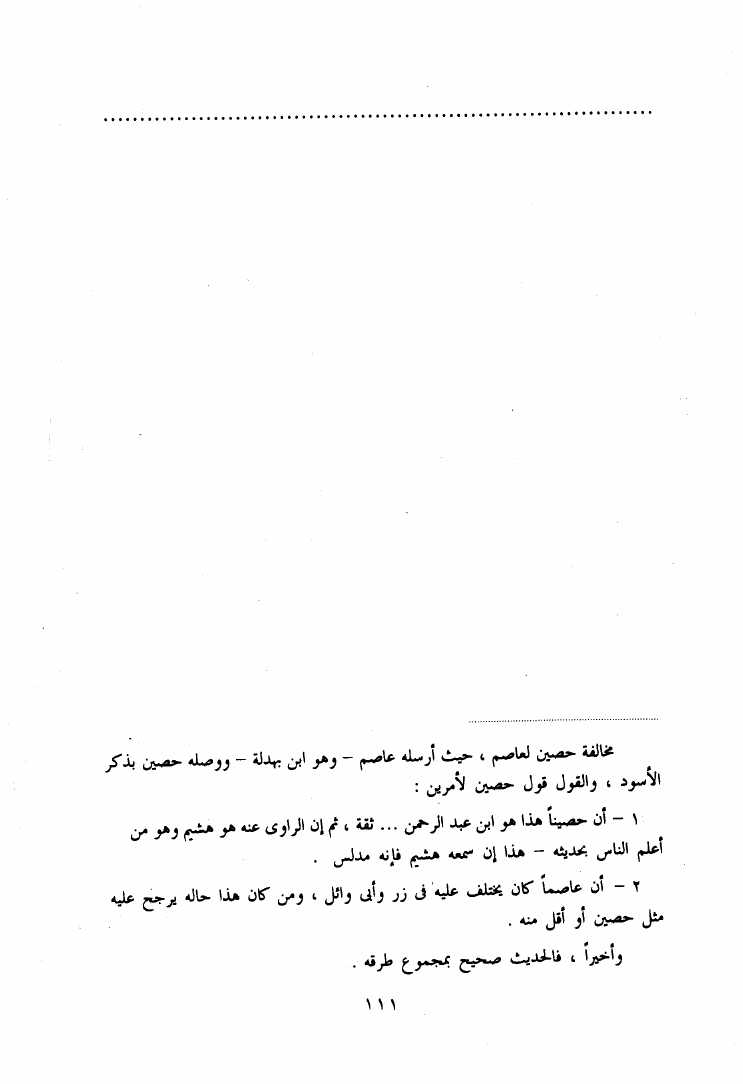 مخالفة حصين لعاصم ، حيث أرسله عاصم – وهو ابن بهدلة – ووصله حصين بذكر
الأسود ، والقول قول حصين لأمرين :
١ – أن حصيناً هذا هو ابن عبد الرحمن ... ثقة ، ثم إن الراوى عنه هو هشيم وهو من
أعلم الناس بحديثه – هذا إن سمعه هشيم فإنه مدلس .
٢ – أن عاصماً كان يختلف عليه فى زر وأبى وائل ، ومن كان هذا حاله يرجح عليه
مثل حصين أو أقل منه .
وأخيراً ، فالحديث صحيح بمجموع طرقه .
١١١